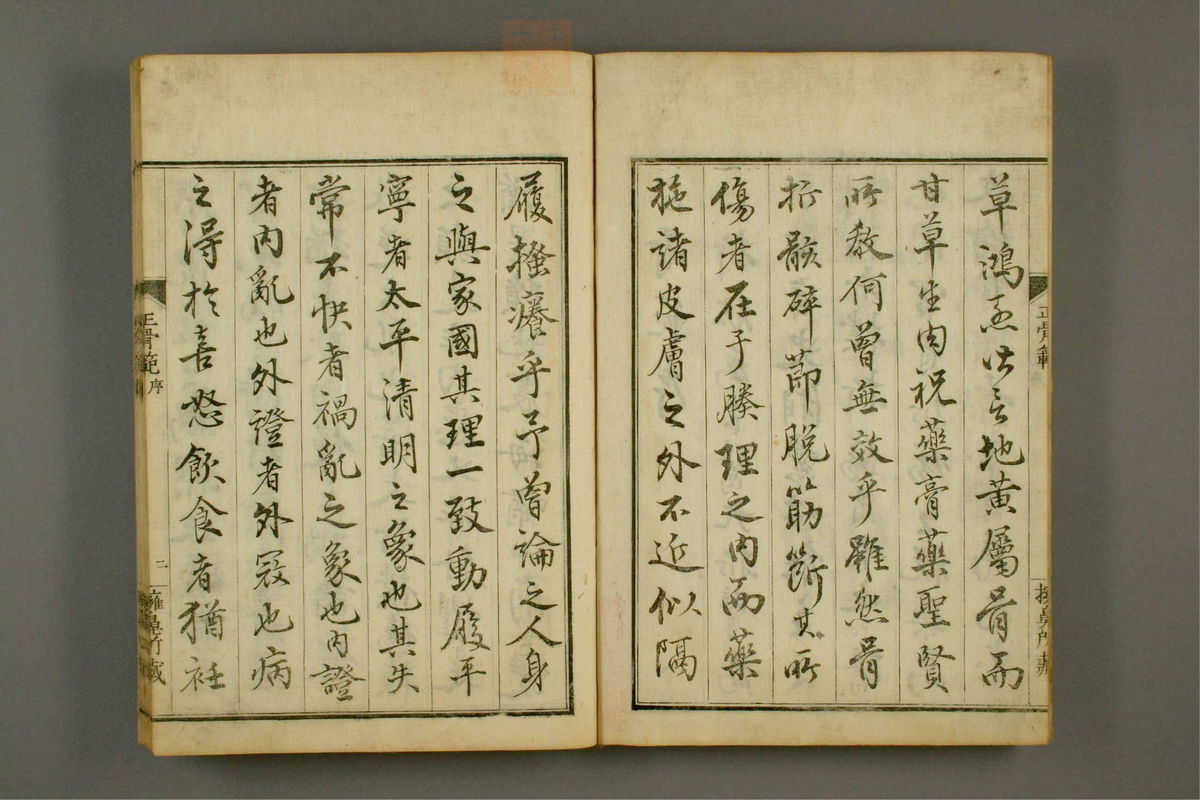 正骨範
草鴻烈皆言地黃屬骨而
甘草生肉祝藥膏藥聖賢
所教何曾無效乎雖然骨
折骸碎節脫筋斷其所
傷者在于腠理之內而藥
施諸皮膚之外不近似隔
履搔癢乎予曾論之人身
之與家國其理一致動履平
寧者太平清明之象也其失
常不快者禍亂之象也內證
者內亂也外證者外寇也病
之得於喜怒飲食者猶衽
正骨範 序
二